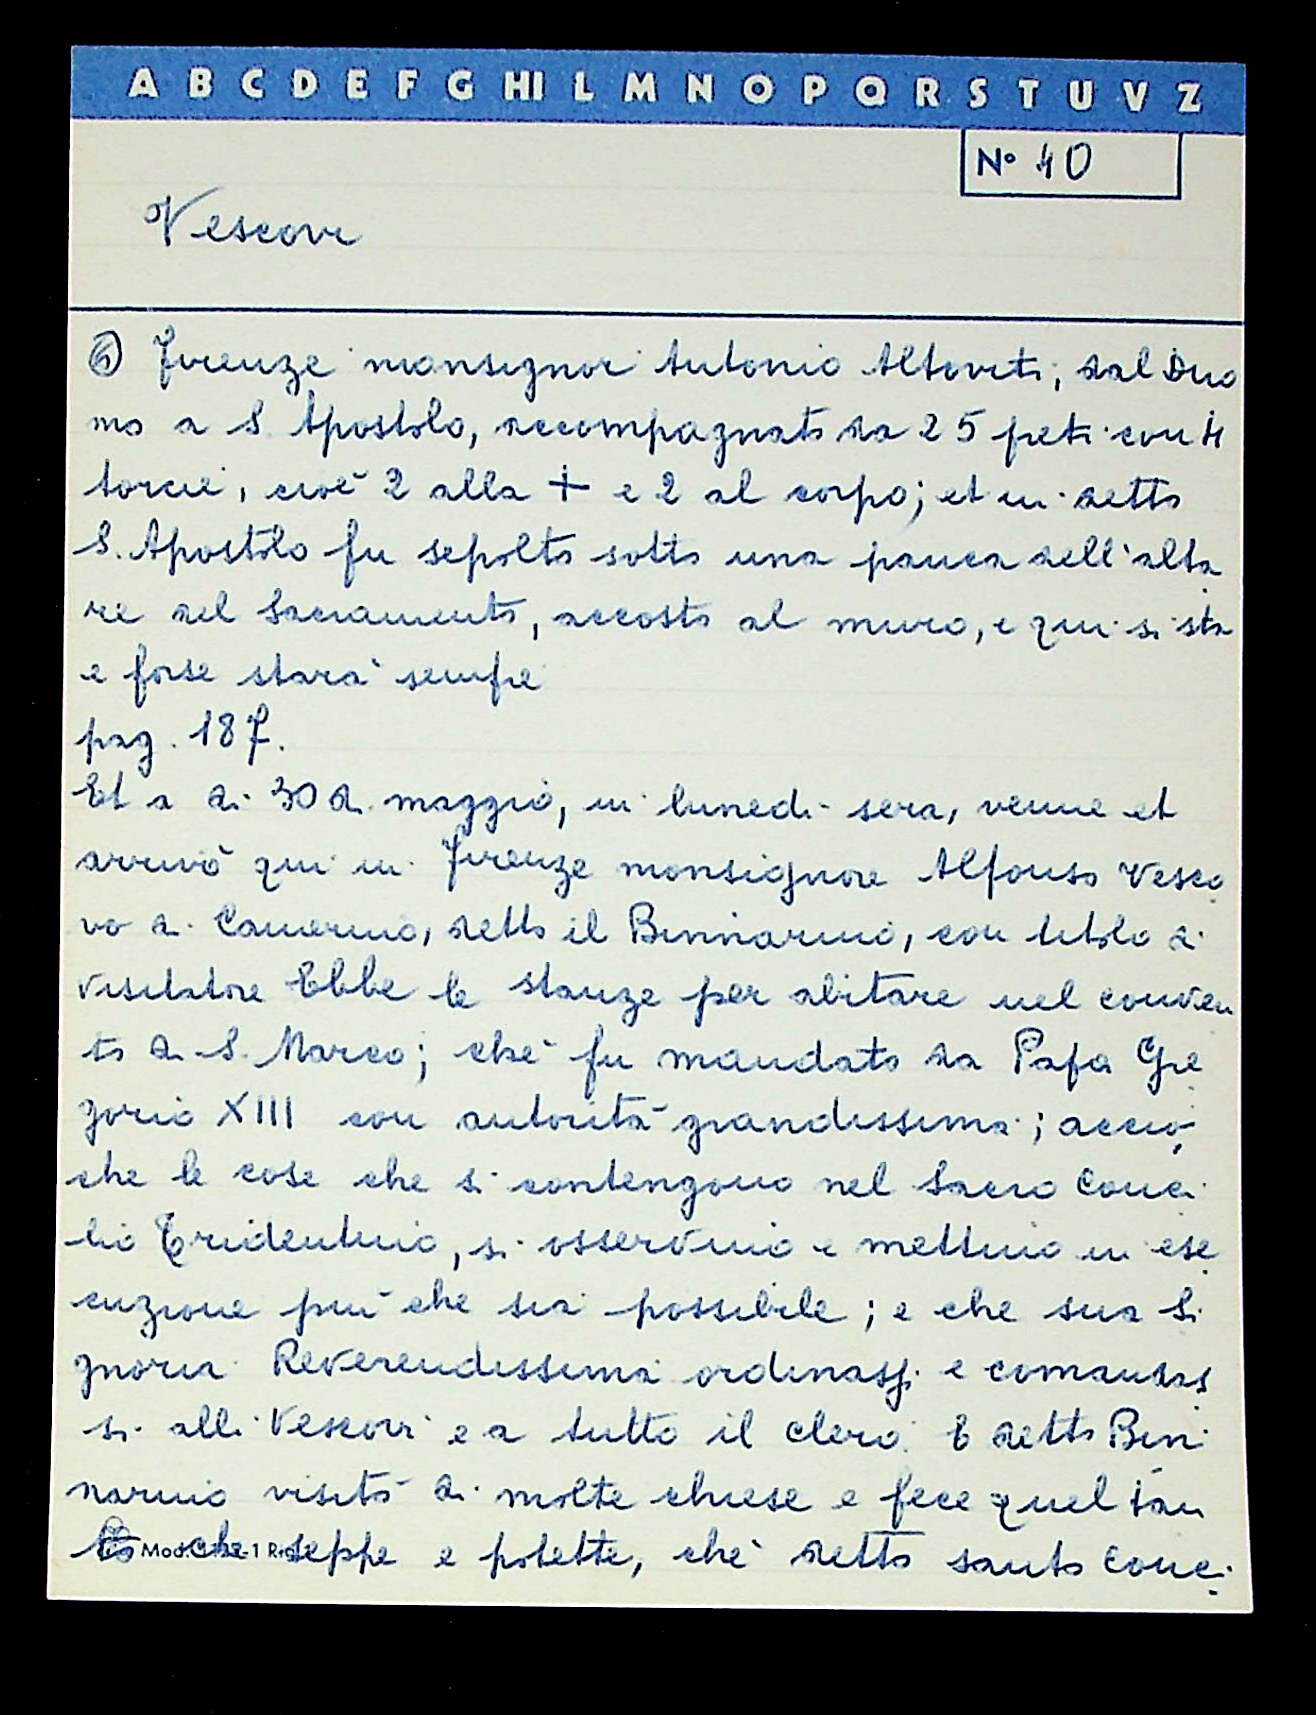 A B C D E F G H I L M N O P Q R S T U V Z
N° 40
Vescovi
6) Firenze monsignor Antonio Altoviti, dal Duo
mo a S. Apostolo, accompagnato da 25 preti con 4
torcie, cioè 2 alla + e 2 al corpo; et in detto
S. Apostolo fu sepolto sotto una panca dell'alta
re del Sacramento, accosto al muro, e qui si sta
e forse starà sempre
pag. 187.
Et a di 30 di maggio, in lunedi sera, venne et
arrivò qui in Firenze monsignore Alfonso Vesco
vo di Camerino, detto il Binnarino, con titolo di
visitatore Ebbe le stanze per abitare nel conven
to di S. Marco; chè fu mandato da Papa Gre
gorio XIII con autorità grandissima; acciò,
che le cose che si contengono nel Sacro Conci
lio Tridentino, si osservino e mettino in ese
cuzione più che sia possibile; e che sua Si
gnoria Reverendissima ordinassi e comandas
si alli Vescovi e a tutto il clero. E detto Bin
narino visitò di molte chiese e fece quel tan
to che seppe e potette, chè detto santo Conci